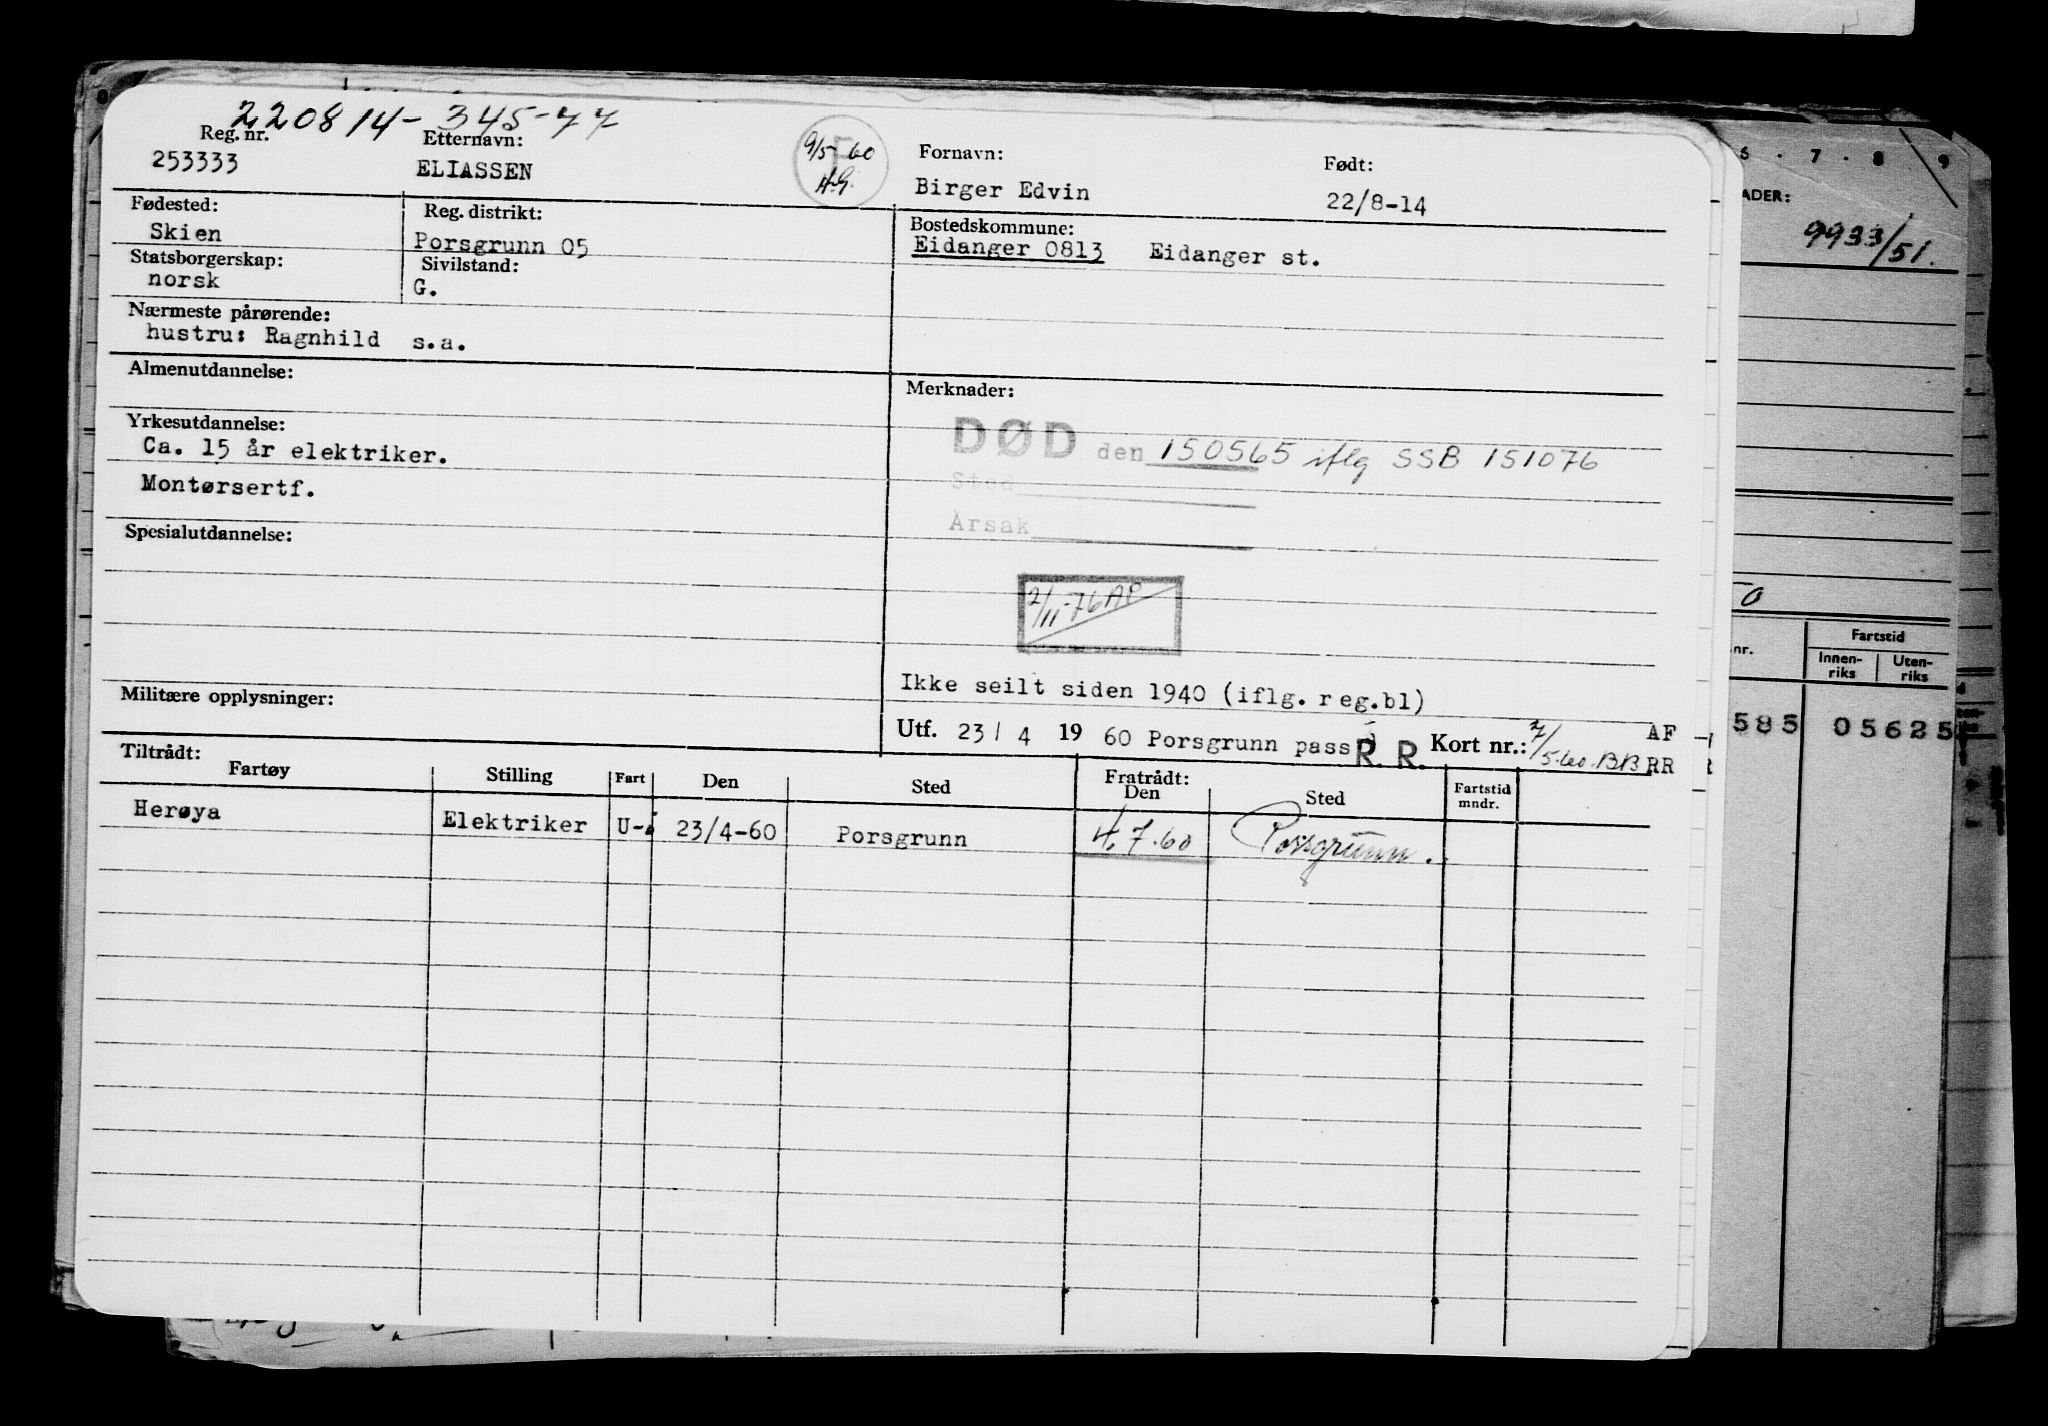 220814-345-77
Reg. nr. Etternavn: Fornavn: Født:
253333 ELIASSEN 9/5-60 H.G. Birger Edvin 22/8-14
Fødested: Reg. distrikt: Bostedskommune:
Skien Porsgrunn 05 Eidanger 0813 Eidanger st.
Statsborgerskap: Sivilstand:
norsk G.
Nærmeste pårørende:
hustru: Ragnhild s.a.
Almenutdannelse: Merknader:
Yrkesutdannelse:
Ca. 15 år elektriker.
Montørsertf.
DØD den 150565 iflg SSB 151076
Sted
Årsak
Spesialutdannelse:
2/11-76 AP
Militære opplysninger:
Ikke seilt siden 1940 (iflg. reg.bl)
Utf. 23/4 19 60 Porsgrunn pass R. R. Kort nr.: 5.60. BB AF
RR
Tiltrådt: Fratrådt:
Fartøy Stilling Fart Den Sted Den Sted Fartstid mndr.
Herøya Elektriker U- 23/4-60 Porsgrunn 4.7.60 Porsgrunn.
6 · 7 · 8 · 9
ADER:
9933/51.
nr. Fartstid
Innen-riks Uten-riks
585 05625